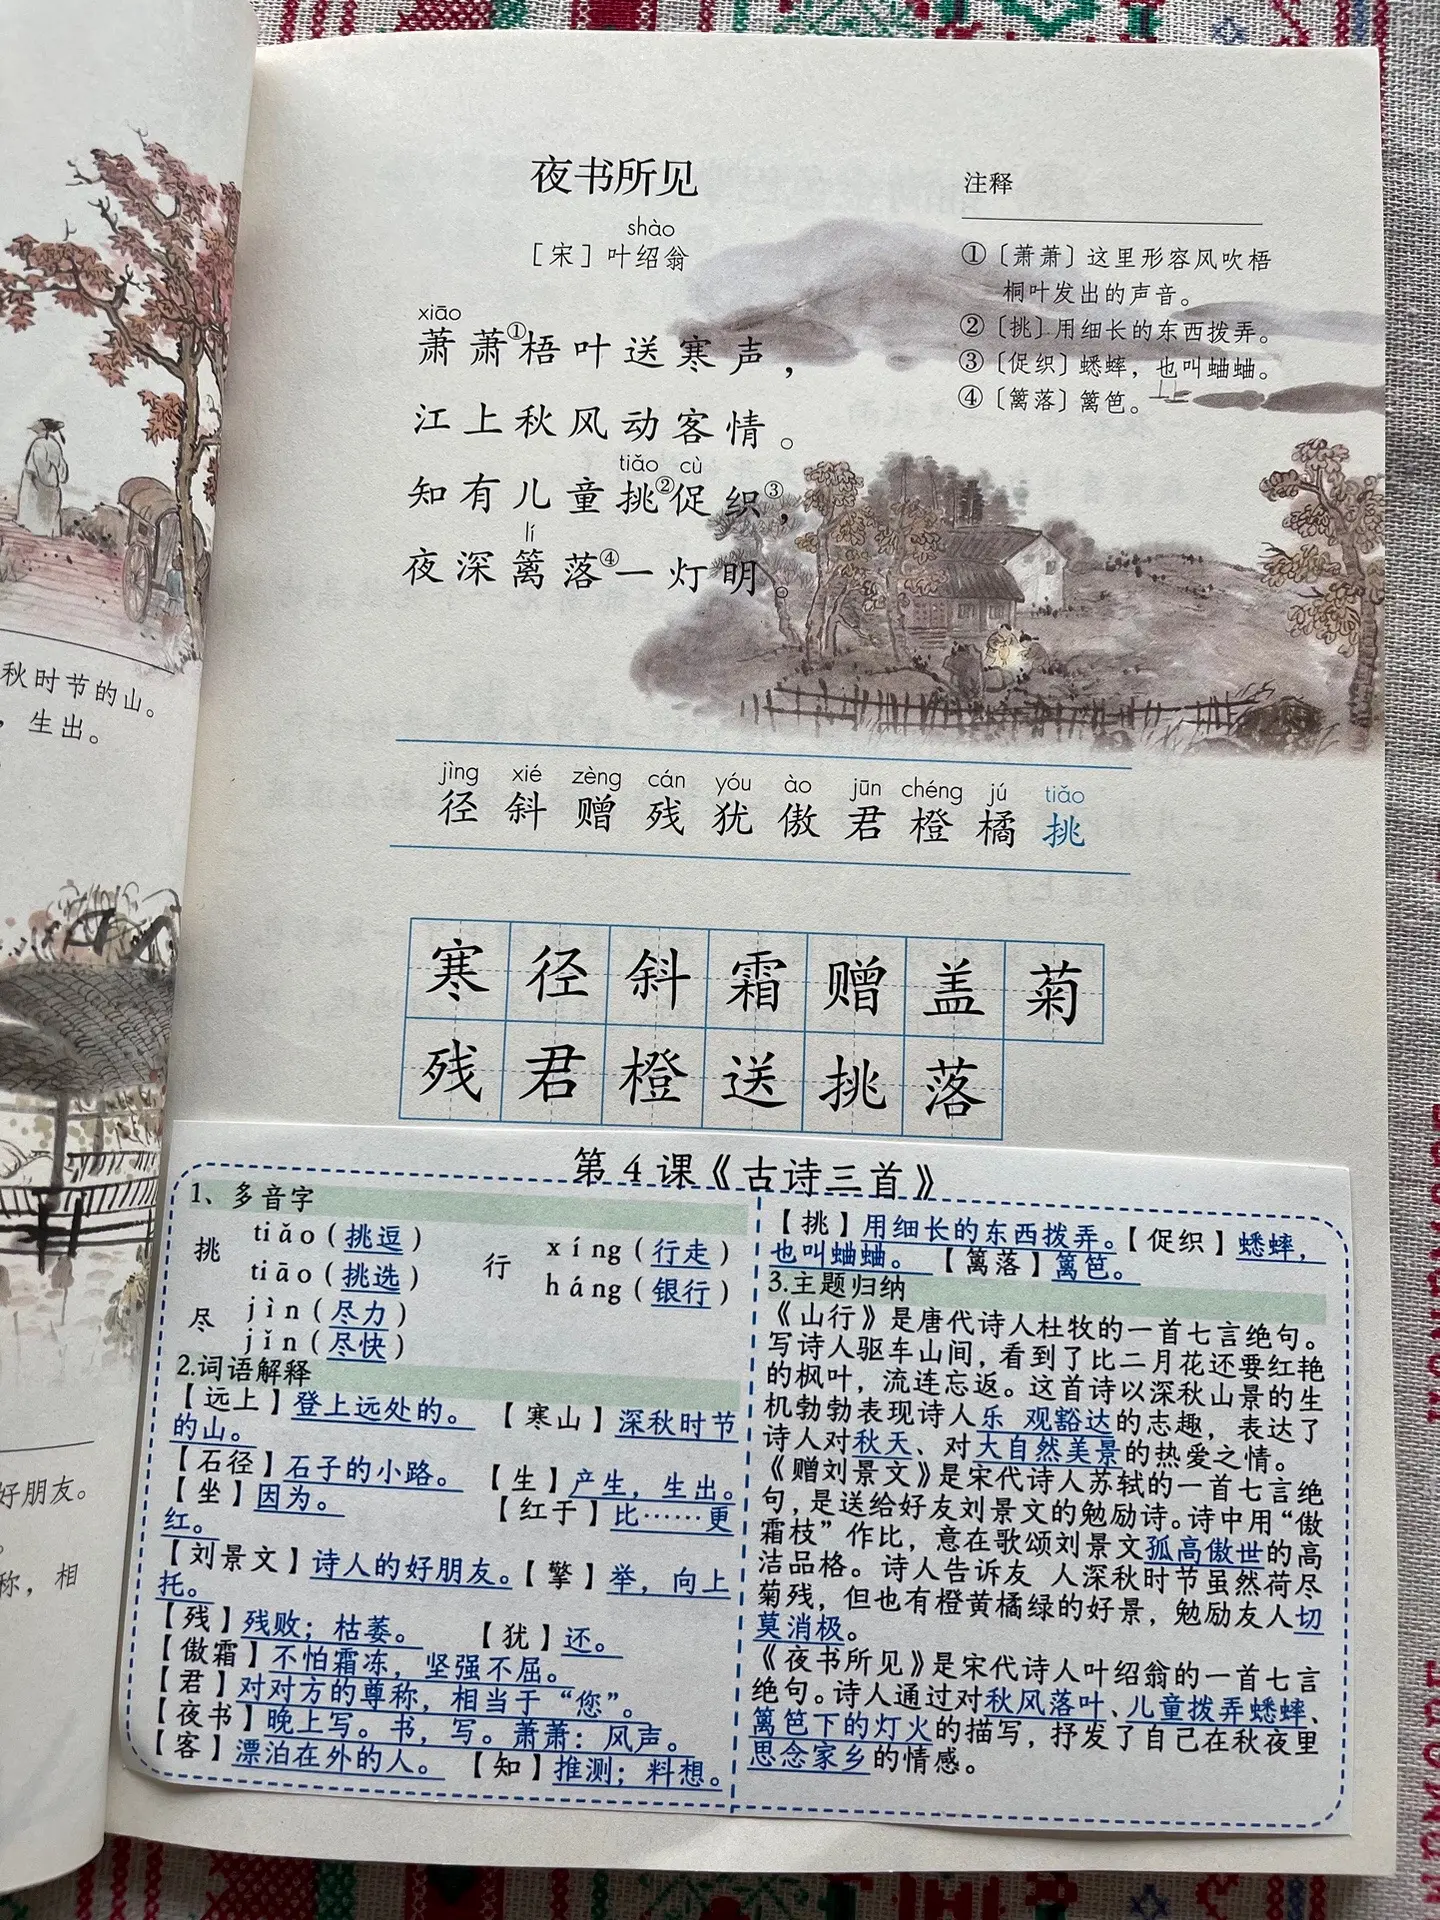 秋时节的山。
，生出。
好朋友。
称，相
夜书所见
shào
［宋］叶绍翁
xiāo
萧萧①梧叶送寒声，
江上秋风动客情。
tiǎo cù
知有儿童挑②促织③，
lí
夜深篱落④一灯明。
注释
①〔萧萧〕这里形容风吹梧
桐叶发出的声音。
②〔挑〕用细长的东西拨弄。
③〔促织〕蟋蟀，也叫蛐蛐。
④〔篱落〕篱笆。
jìng xié zèng cán yóu ào jūn chéng jú tiǎo
径 斜 赠 残 犹 傲 君 橙 橘 挑
寒 径 斜 霜 赠 盖 菊
残 君 橙 送 挑 落
第4课《古诗三首》
1、多音字
挑 tiǎo（挑逗）
tiāo（挑选）
行 xíng（行走）
háng（银行）
尽 jìn（尽力）
jǐn（尽快）
2.词语解释
【远上】登上远处的。【寒山】深秋时节
的山。
【石径】石子的小路。【生】产生，生出。
【坐】因为。【红于】比……更
红。
【刘景文】诗人的好朋友。【擎】举，向上
托。
【残】残败；枯萎。【犹】还。
【傲霜】不怕霜冻，坚强不屈。
【君】对对方的尊称，相当于“您”。
【夜书】晚上写。书，写。萧萧：风声。
【客】漂泊在外的人。【知】推测；料想。
【挑】用细长的东西拨弄。【促织】蟋蟀，
也叫蛐蛐。【篱落】篱笆。
3.主题归纳
《山行》是唐代诗人杜牧的一首七言绝句。
写诗人驱车山间，看到了比二月花还要红艳
的枫叶，流连忘返。这首诗以深秋山景的生
机勃勃表现诗人乐 观豁达的志趣，表达了
诗人对秋天、对大自然美景的热爱之情。
《赠刘景文》是宋代诗人苏轼的一首七言绝
句，是送给好友刘景文的勉励诗。诗中用“傲
霜枝”作比，意在歌颂刘景文孤高傲世的高
洁品格。诗人告诉友 人深秋时节虽然荷尽
菊残，但也有橙黄橘绿的好景，勉励友人切
莫消极。
《夜书所见》是宋代诗人叶绍翁的一首七言
绝句。诗人通过对秋风落叶、儿童拨弄蟋蟀、
篱笆下的灯火的描写，抒发了自己在秋夜里
思念家乡的情感。